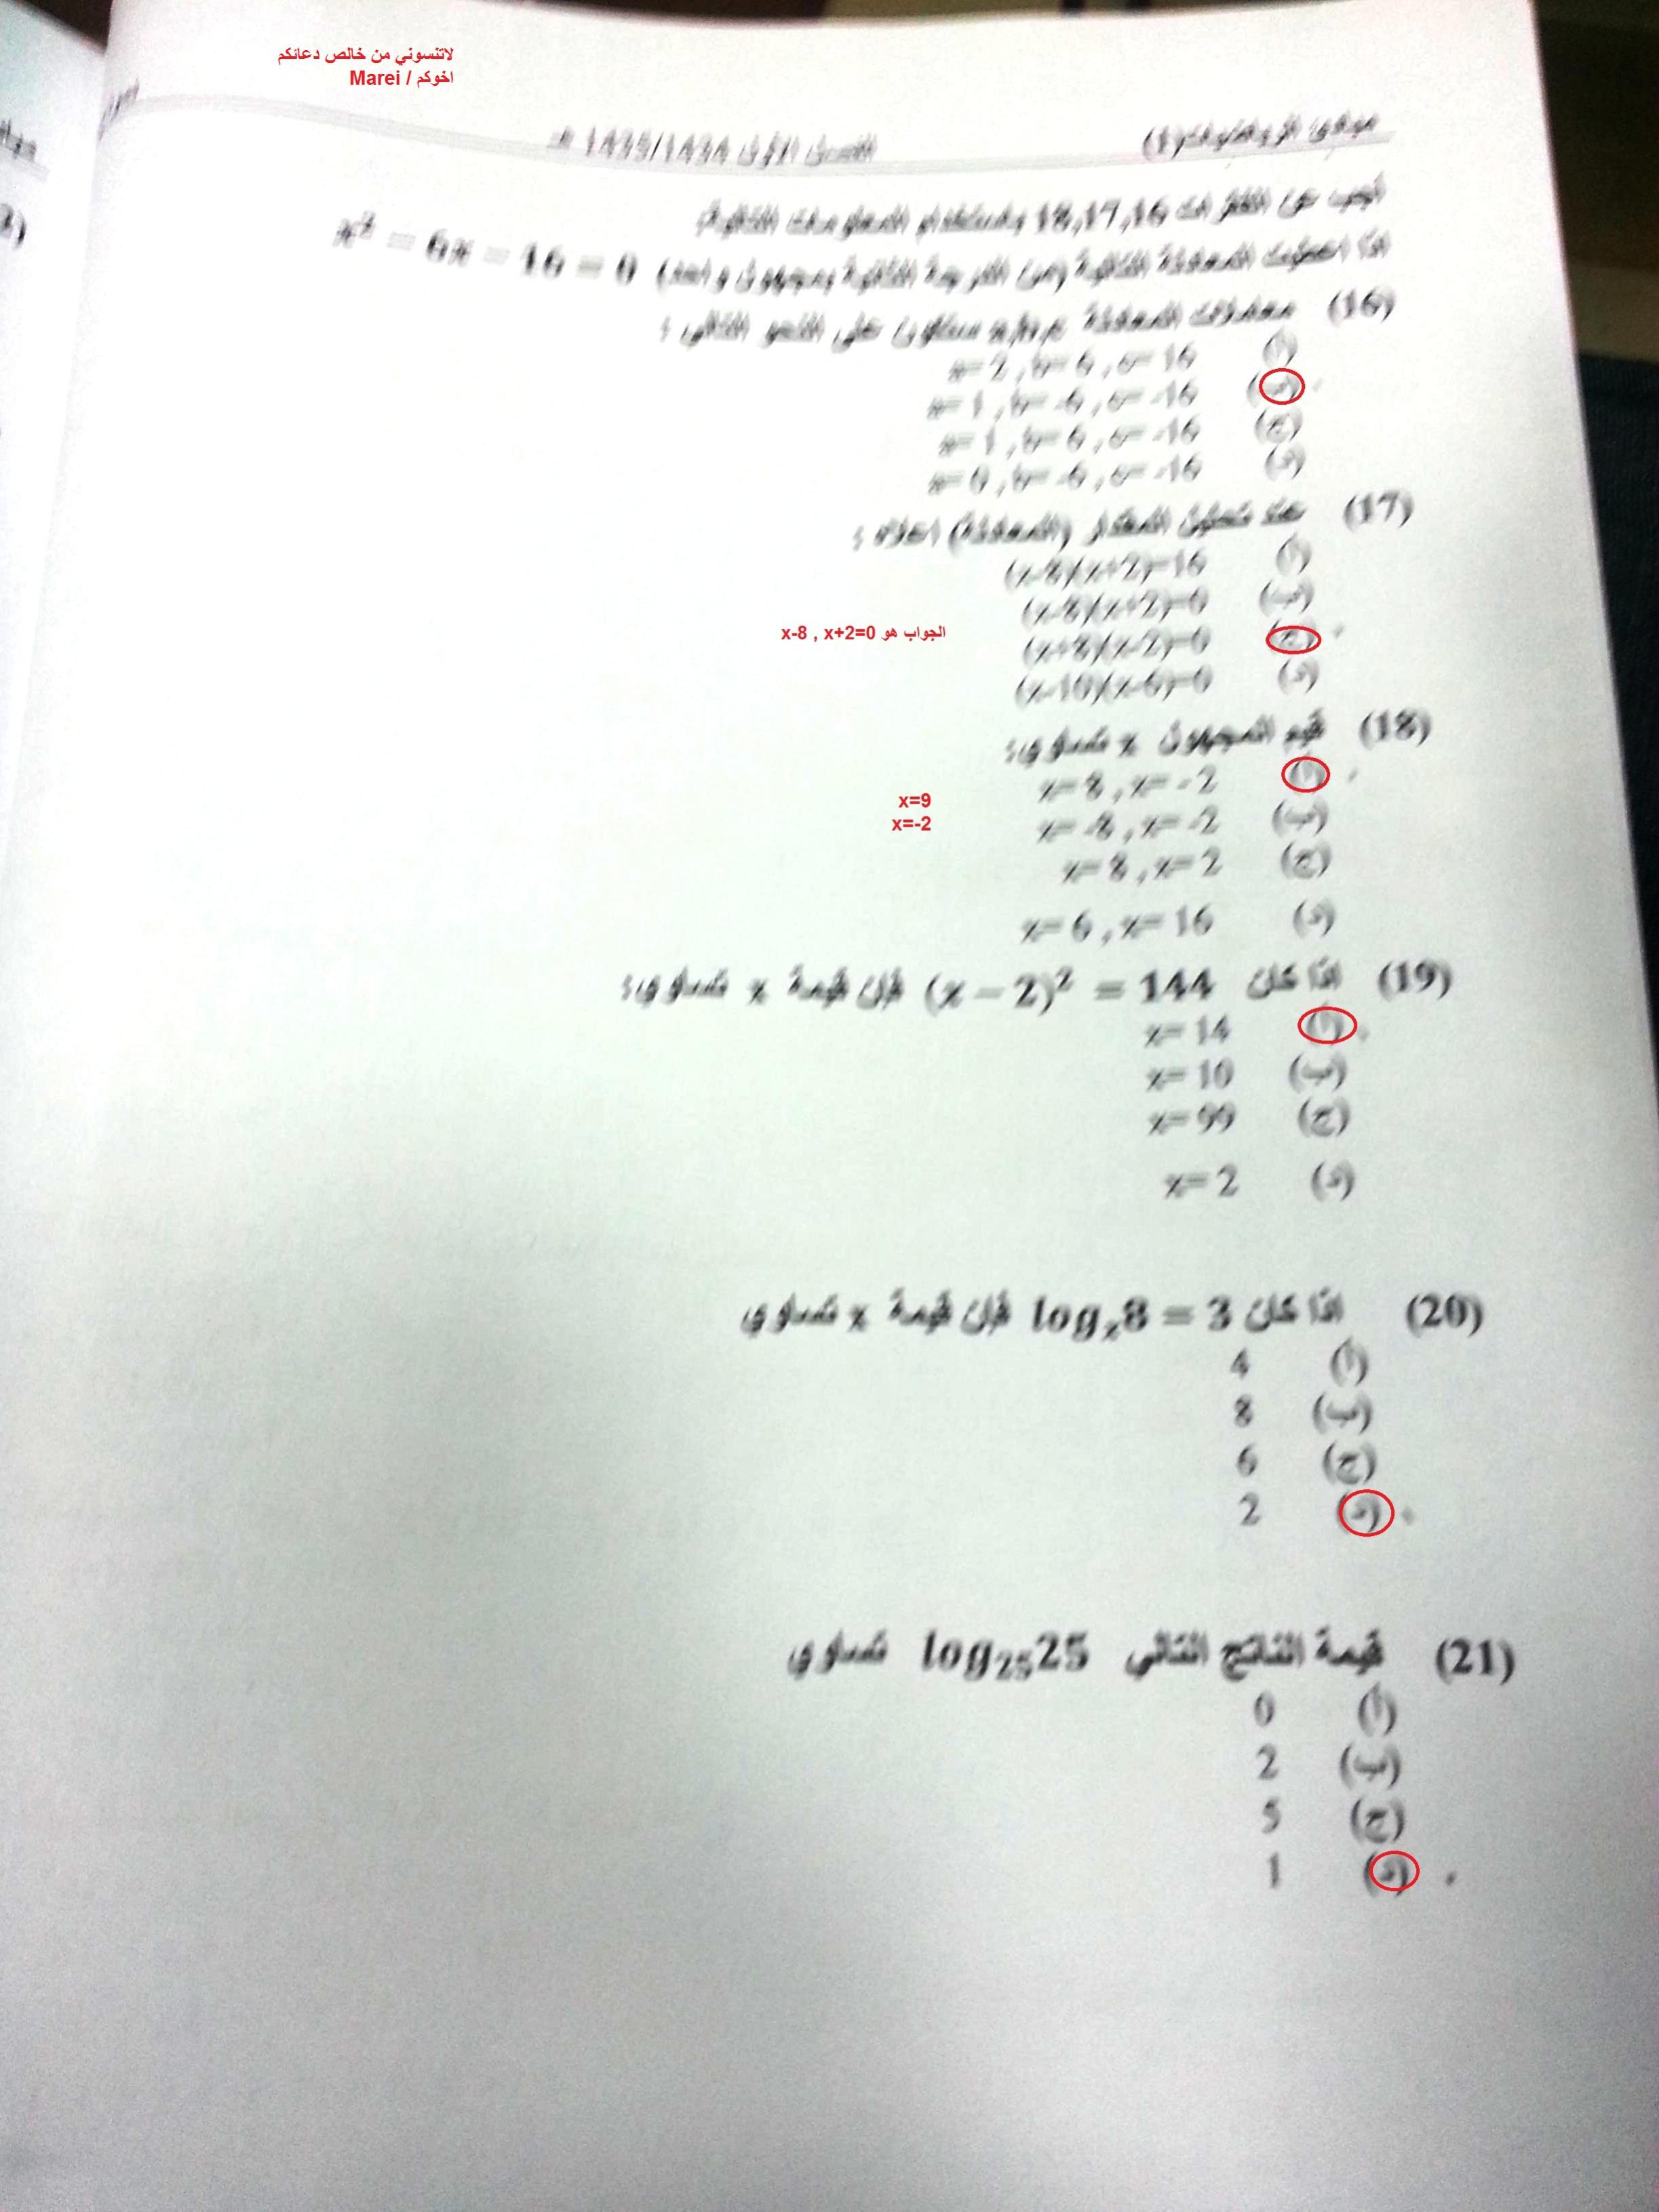 لاتنسوني من خالص دعائكم
اخوكم / Marei
مبادئ الرياضيات(1) الفصل الأول 1435/1434 هـ
أجب عن الفقرات 18,17,16 باستخدام المعلومات التالية:
اذا اعطيت المعادلة التالية (من الدرجة الثانية بمجهول واحد) x² − 6x − 16 = 0
(16) معاملات المعادلة ستكون على النحو التالي :
(أ) a= 2 , b= 6 , c= 16
(ب) a= 1 , b= -6 , c= -16
(ج) a= 1 , b= 6 , c= -16
(د) a= 0 , b= -6 , c= -16
(17) عند تحليل المقدار (المعادلة) اعلاه :
(أ) (x-8)(x+2)=16
(ب) (x-8)(x+2)=0
(ج) (x+8)(x-2)=0
الجواب هو x-8 , x+2=0
(د) (x-10)(x-6)=0
(18) قيم المجهول x تساوي:
(أ) x= 8 , x= -2
x=9
x=-2
(ب) x= -8 , x= -2
(ج) x= 8 , x= 2
(د) x= 6 , x= 16
(19) اذا كان (x − 2)² = 144 فإن قيمة x تساوي:
(أ) x= 14
(ب) x= 10
(ج) x= 99
(د) x= 2
(20) اذا كان logₓ8 = 3 فإن قيمة x تساوي
(أ) 4
(ب) 8
(ج) 6
(د) 2
(21) قيمة الناتج التالي log₂₅25 تساوي
(أ) 0
(ب) 2
(ج) 5
(د) 1